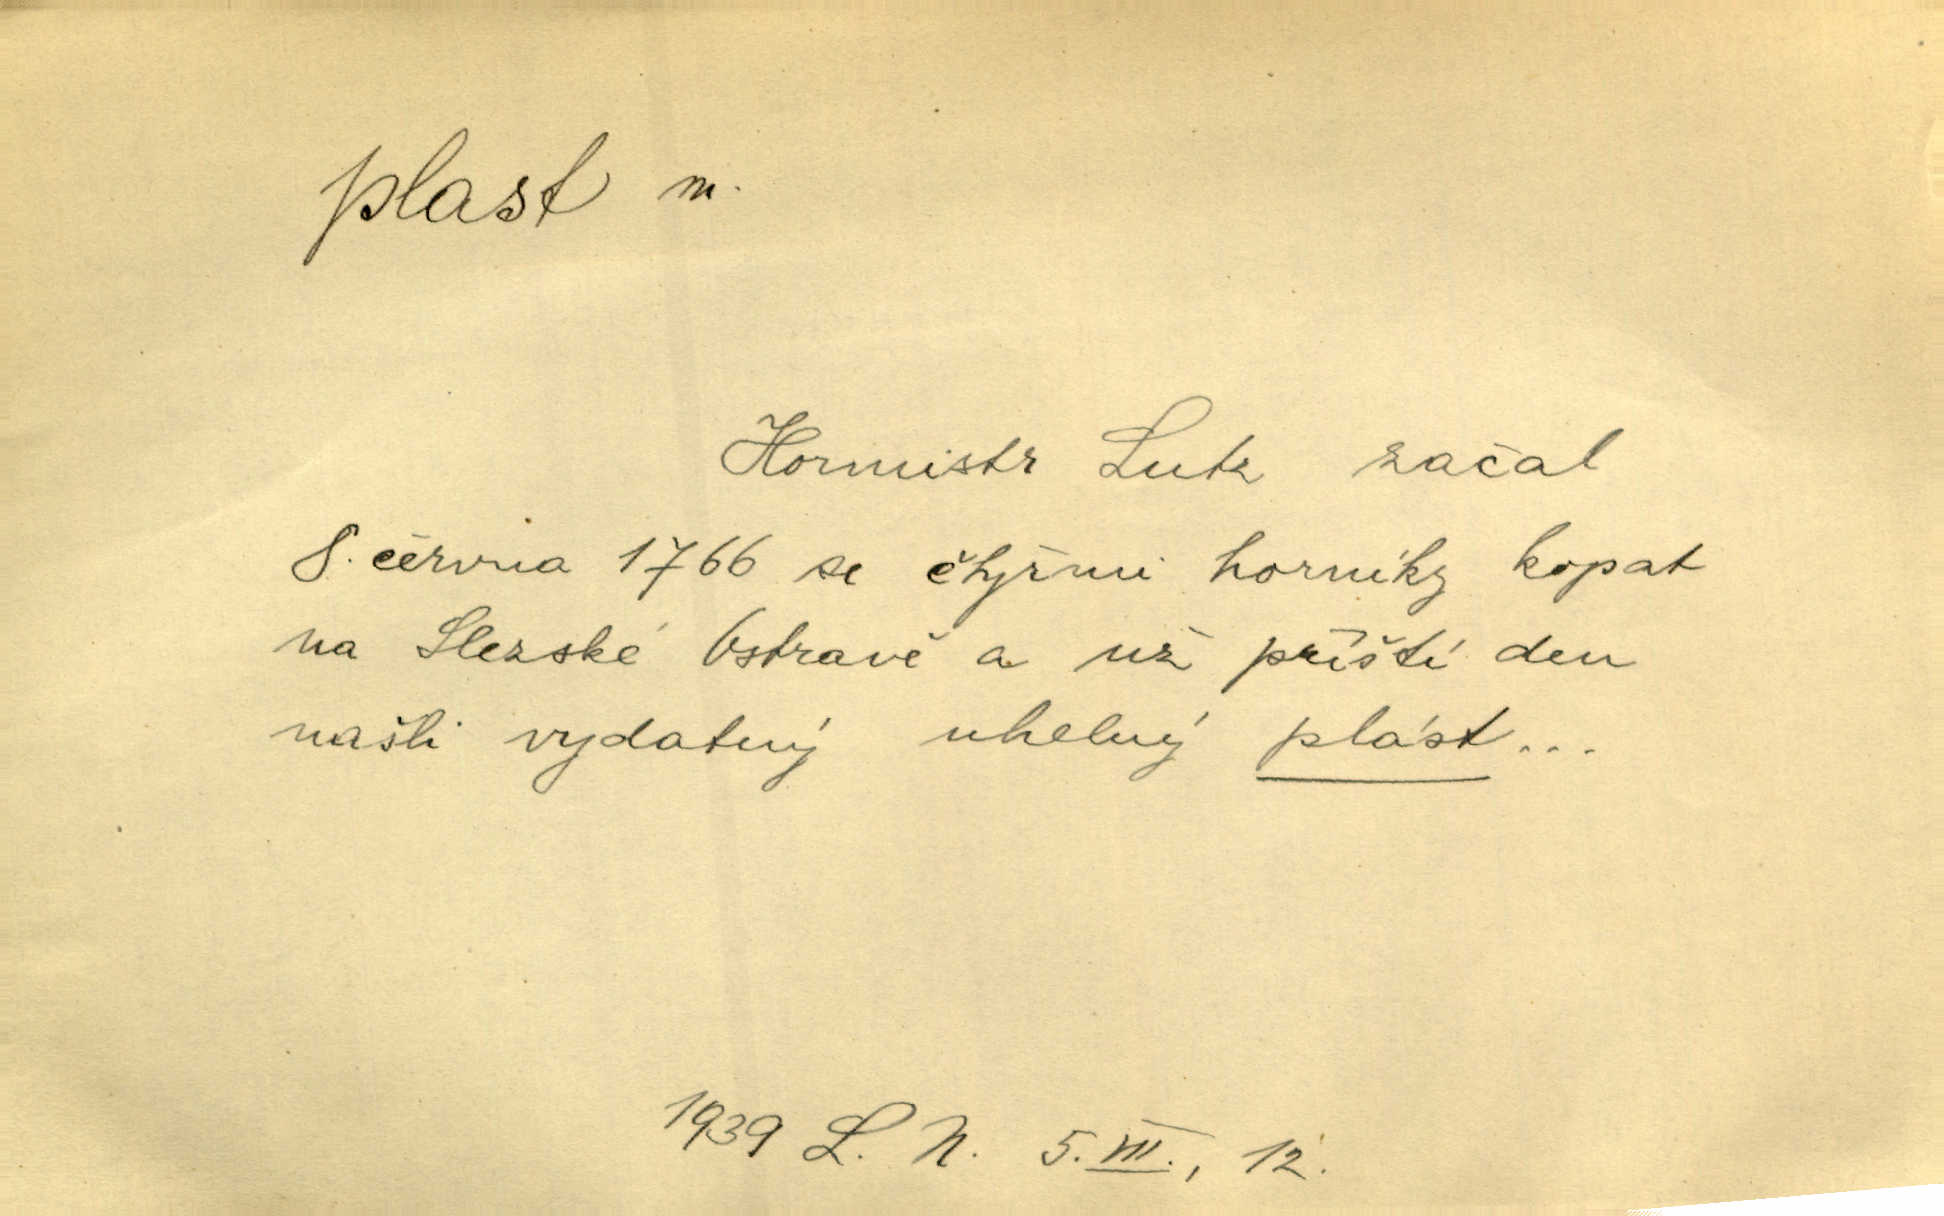 plast m.
Hormistr Lutz začal
8. června 1766 se čtyřmi horníky kopat
na Slezské Ostravě a už příští den
našli vydatný uhelný plást...
1939 L. N. 5. VIII., 12.